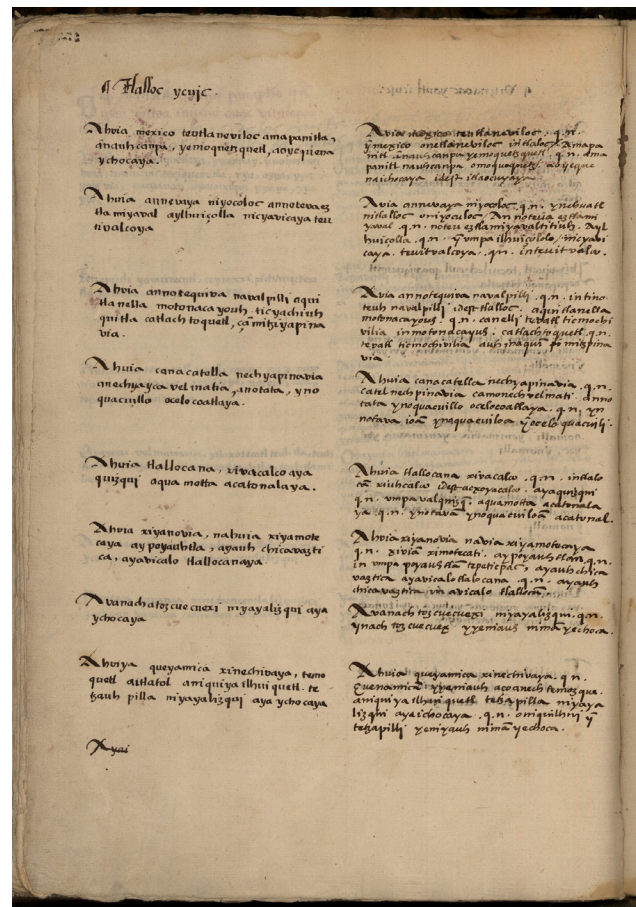 ¶ Tlalloc ycujc.
Ahvia mexico teutlaneviloc amapanitla,
anauhcampa, yemoquetzquetl, aoyequena
ychocaya.
Ahuia annevaya niyocoloc annotevaez
tlamiyaval aylhuiçolla nicyavicaya teu
tivalcoya
Ahvia annotequiva navalpilli aqui
tlanella motonacayouh ticyachiuh
quitla catlachtoquetl, çamitziyapina
via.
Ahuia canacatella nechyapinavia
anechyayca velmatia, anotata, yno
quacuillo ocelocoatlaya.
Ahuia tlallocana, xivacalco aya
quizqui aqua motta acatonalaya.
Ahvia xiyanovia, nahuia xiyamote
caya ay poyauhtla, ayauh chicavazti
ca, ayavicalo tlallocanaya.
Avanach tozcuecuexi niyayalizqui aya
ychocaya
Ahviya queyamica xinechivaya, temo
quetl aitlatol aniquiya ilhuiquetl. te
tzauh pilla niyayalizqui aya ychocaya
Ayai
Avia mexico teutlaneviloc .q.n.
ỹ mexico onetlaneviloc intlaloc. Amapa
nitl anauhcampa yemoquetzquetl .q.n. ama
panitl nauhcampa omoquequetz. aoyeque
naichocaya idest itlaocuyaya.
Avia annevaya niyocoloc .q.n. ynehuatl
nitlalloc oniyoculoc. Annoteua eztlami
yaval .q.n. noteu eztlamiyavaltitiuh. Ayl
huiçolla .q.n. ỹ umpa ilhuiçololo. nicyavi
caya. teuitvalcoya .q.n. inteuitvalco.
Avia annotequiva navalpilli .q.n. intino
teuh navalpilli idest tlalloc. aquitlanella
motonacayouh .q.n. canelli tevatl ticmochi
vilia inmotonacayuh. catlachtoquetl .q.n.
tevatl ticmochivilia auh inaquin mitzpina
via
Ahuia canacatella nechyapinavia .q.n.
catel nechpinavia camonechvelmati. anno
tata ynoquacuillo ocelocoatlaya .q.n. yn
notava ioan ynoquacuiloa ỹ ocelo quacuili.
Ahuia tlallocana xivacalco .q.n. intlalo
cã xiuhcalco idest acxoyacalco. ayaquizqui
.q.n. umpa valquizq. aquamotta acatonala
ya .q.n. ynotavã ynoquacuiloã acatunal.
Ahvia xiyanovia navia xiyamotecaya
.q.n. xivia ximotecati. ay poyauhtlan .q.n.
in umpa poyauhtlã tepeticpac, ayauh chica
vaztica ayavicalo tlalocana .q.n. ayauh
chicavaztica in avicalo tlallocã.
Avanach tozcuecuexi niyayalizqui .q.n.
ynach tozcuecuex yyeniauh nimã yechoca.
Ahuia queyamica xinechivaya .q.n.
quenamicã yyeniauh acoanechtemozque.
aniquiya ilhuiquetl tetzapilla niyaya
lizqui ayaichocaya .q.n. oniquilhui ỹ
tetzapilli yeniyauh nimã yechoca.